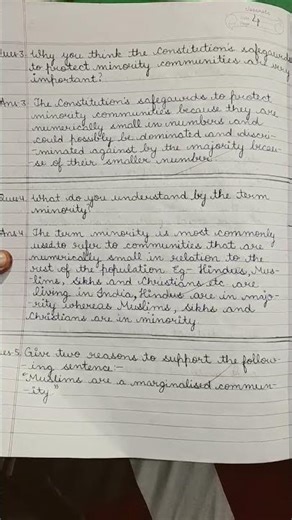 4
Ques 3. Why you think the Constitution's safegaurds
to protect minority communities are very
important?
Ans. 3 The Constitution's safegaurds to protect
minority communities because they are
numerically small in numbers and
could possibly be dominated and discri-
-minated against by the majority becau-
se of their smaller number
Ques 4. What do you understand by the term
minority?
Ans 4 The term minority is most commonly
used to refer to communities that are
numerically small in relation to the
rest of the population Eg - Hindus, Mus-
lims, Sikhs and Christians etc are
living in India, Hindus are in majo-
rity whereas Muslims, Sikhs and
Christians are in minority
ues. 5. Give two reasons to support the follow-
-ing sentence:-
"Muslims are a marginalised commun-
-ity"